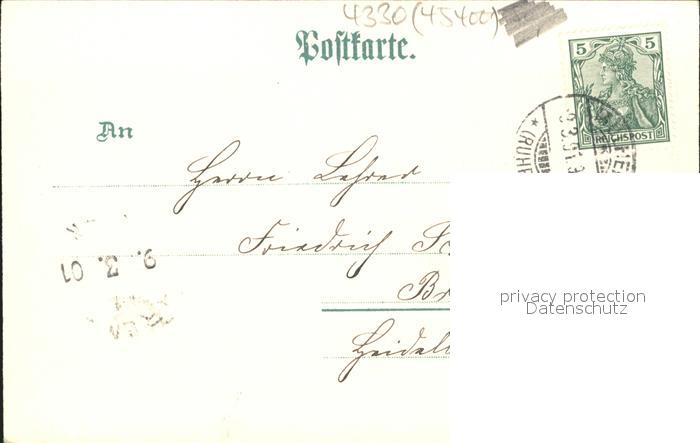 4330 (45400)
Postkarte.
5 5
REICHSPOST
(RUHR
An
Herrn Lehrer
Friedrich
9. 3. 01
privacy protection
Datenschutz